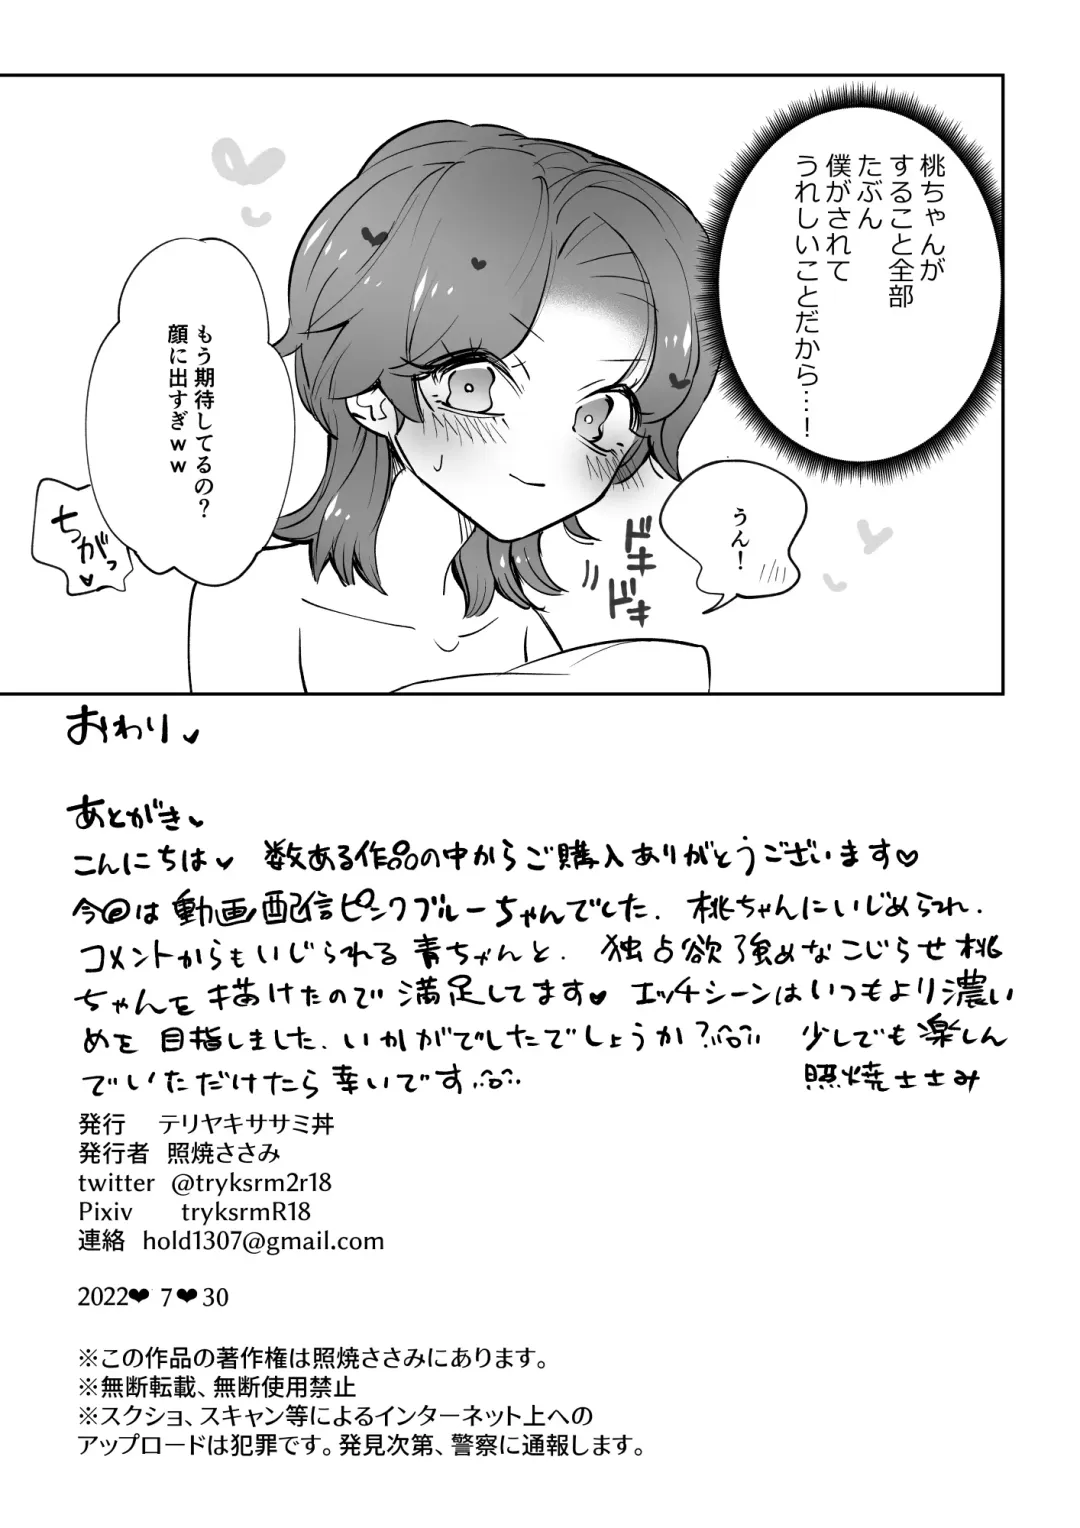 桃ちゃんが
すること全部
たぶん
僕がされて
うれしいことだから…！
うん！
ドキ
ドキ
もう期待してるの？
顔に出すぎｗｗ
ちがっ♥
おわり♥
あとがき♥
こんにちは♥ 数ある作品の中からご購入ありがとうございます♡
今回は動画配信ピンクブルーちゃんでした. 桃ちゃんにいじめられ.
コメントからもいじられる青ちゃんと. 独占欲強めなこじらせ桃
ちゃんを描けたので満足してます♥ エッチシーンはいつもより濃い
めを目指しました. いかがでしたでしょうか？ 少しでも楽しん
でいただけたら幸いです 照焼ささみ
発行 テリヤキササミ丼
発行者 照焼ささみ
twitter @tryksrm2r18
Pixiv tryksrmR18
連絡 hold1307@gmail.com
2022❤ 7 ❤ 30
※この作品の著作権は照焼ささみにあります。
※無断転載、無断使用禁止
※スクショ、スキャン等によるインターネット上への
アップロードは犯罪です。発見次第、警察に通報します。